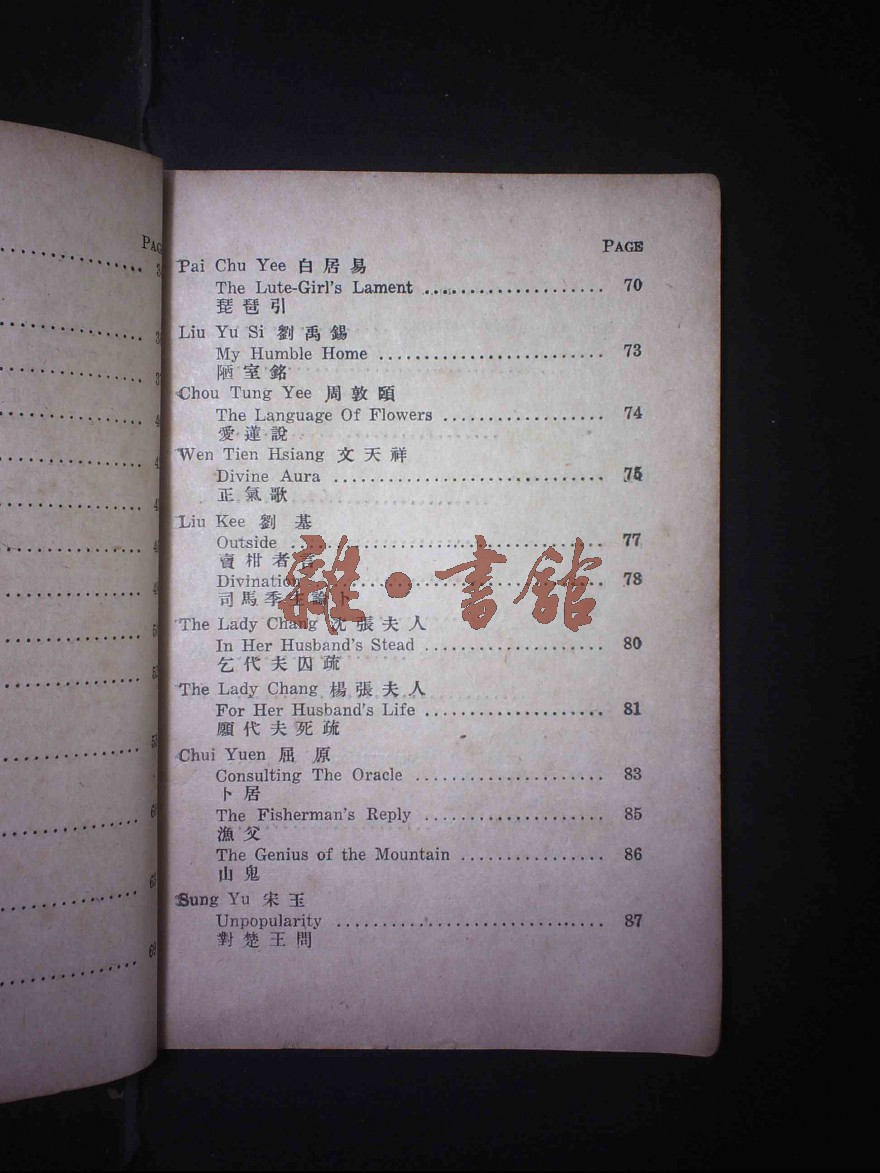 PAGE
Pai Chu Yee 白居易
The Lute-Girl's Lament .................... 70
琵琶引
Liu Yu Si 劉禹錫
My Humble Home ......................... 73
陋室銘
Chou Tung Yee 周敦頤
The Language Of Flowers .................. 74
愛蓮說
Wen Tien Hsiang 文天祥
Divine Aura .............................. 75
正氣歌
Liu Kee 劉基
Outside ................................... 77
賣柑者言
Divination ................................ 78
司馬季主論卜
The Lady Chang 沈張夫人
In Her Husband's Stead .................... 80
乞代夫囚疏
The Lady Chang 楊張夫人
For Her Husband's Life .................... 81
願代夫死疏
Chui Yuen 屈原
Consulting The Oracle ..................... 83
卜居
The Fisherman's Reply .................... 85
漁父
The Genius of the Mountain ................ 86
山鬼
Sung Yu 宋玉
Unpopularity .............................. 87
對楚王問
雜·書館